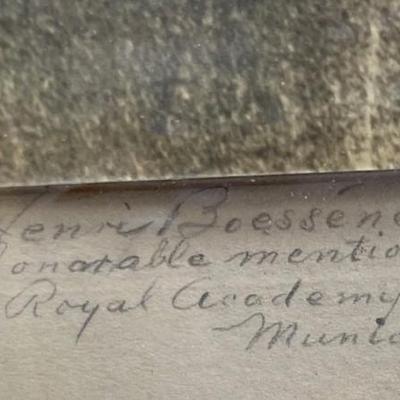 Henri Boessen
Honorable mentio
Royal Academy
Munic